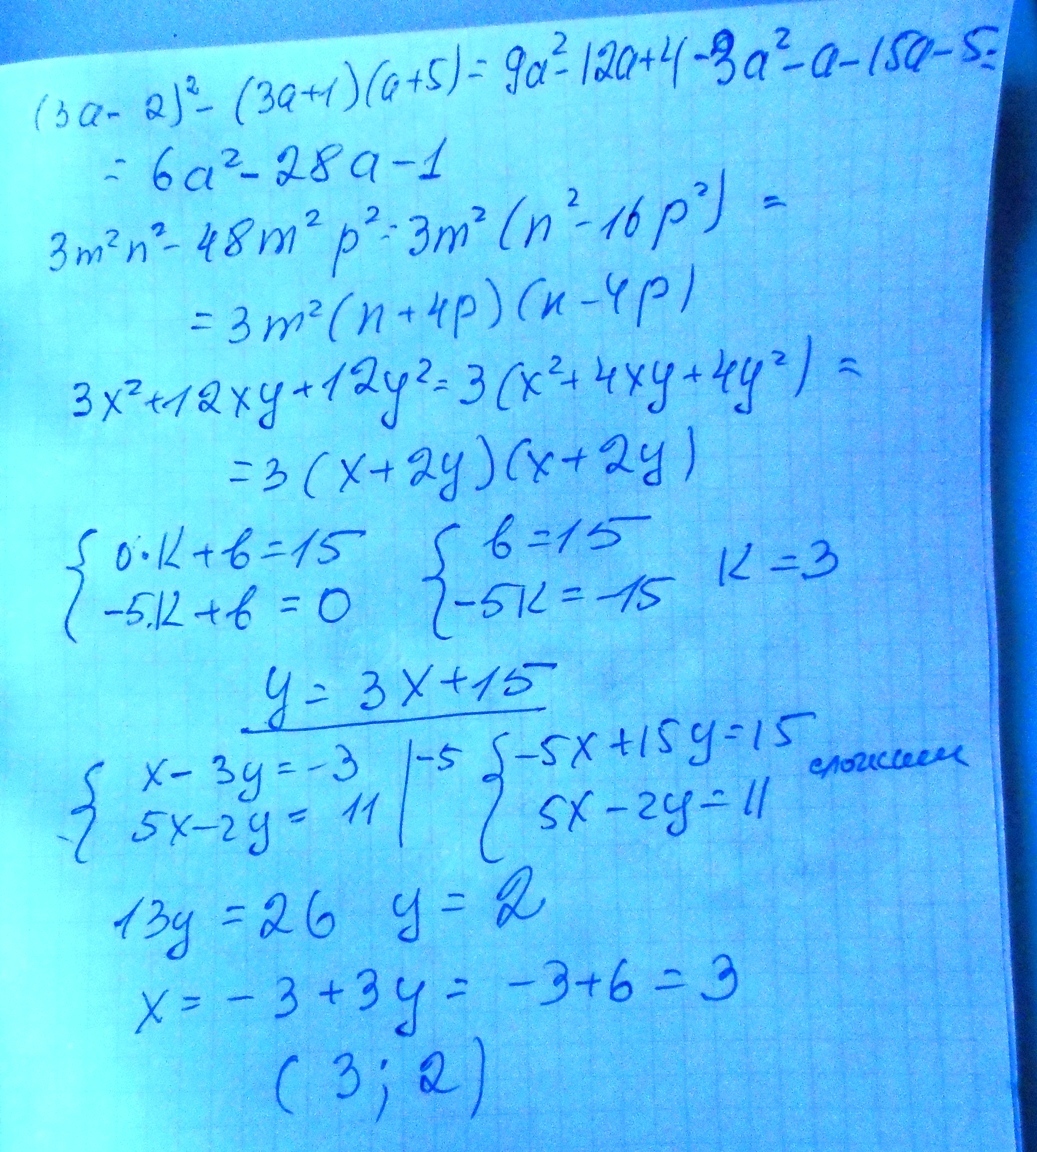 (3a - 2)² - (3a+1)(a+5) = 9a² - 12a + 4 - 3a² - a - 15a - 5 =
= 6a² - 28a - 1
3m²n² - 48m²p² = 3m²(n² - 16p²) =
= 3m²(n + 4p)(n - 4p)
3x² + 12xy + 12y² = 3(x² + 4xy + 4y²) =
= 3(x + 2y)(x + 2y)
{ 0·K + b = 15 { b = 15
{ -5·K + b = 0 { -5K = -15 K = 3
y = 3x + 15
{ x - 3y = -3 | -5 { -5x + 15y = 15 сложим
{ 5x - 2y = 11 | { 5x - 2y = 11
13y = 26 y = 2
x = -3 + 3y = -3 + 6 = 3
(3; 2)